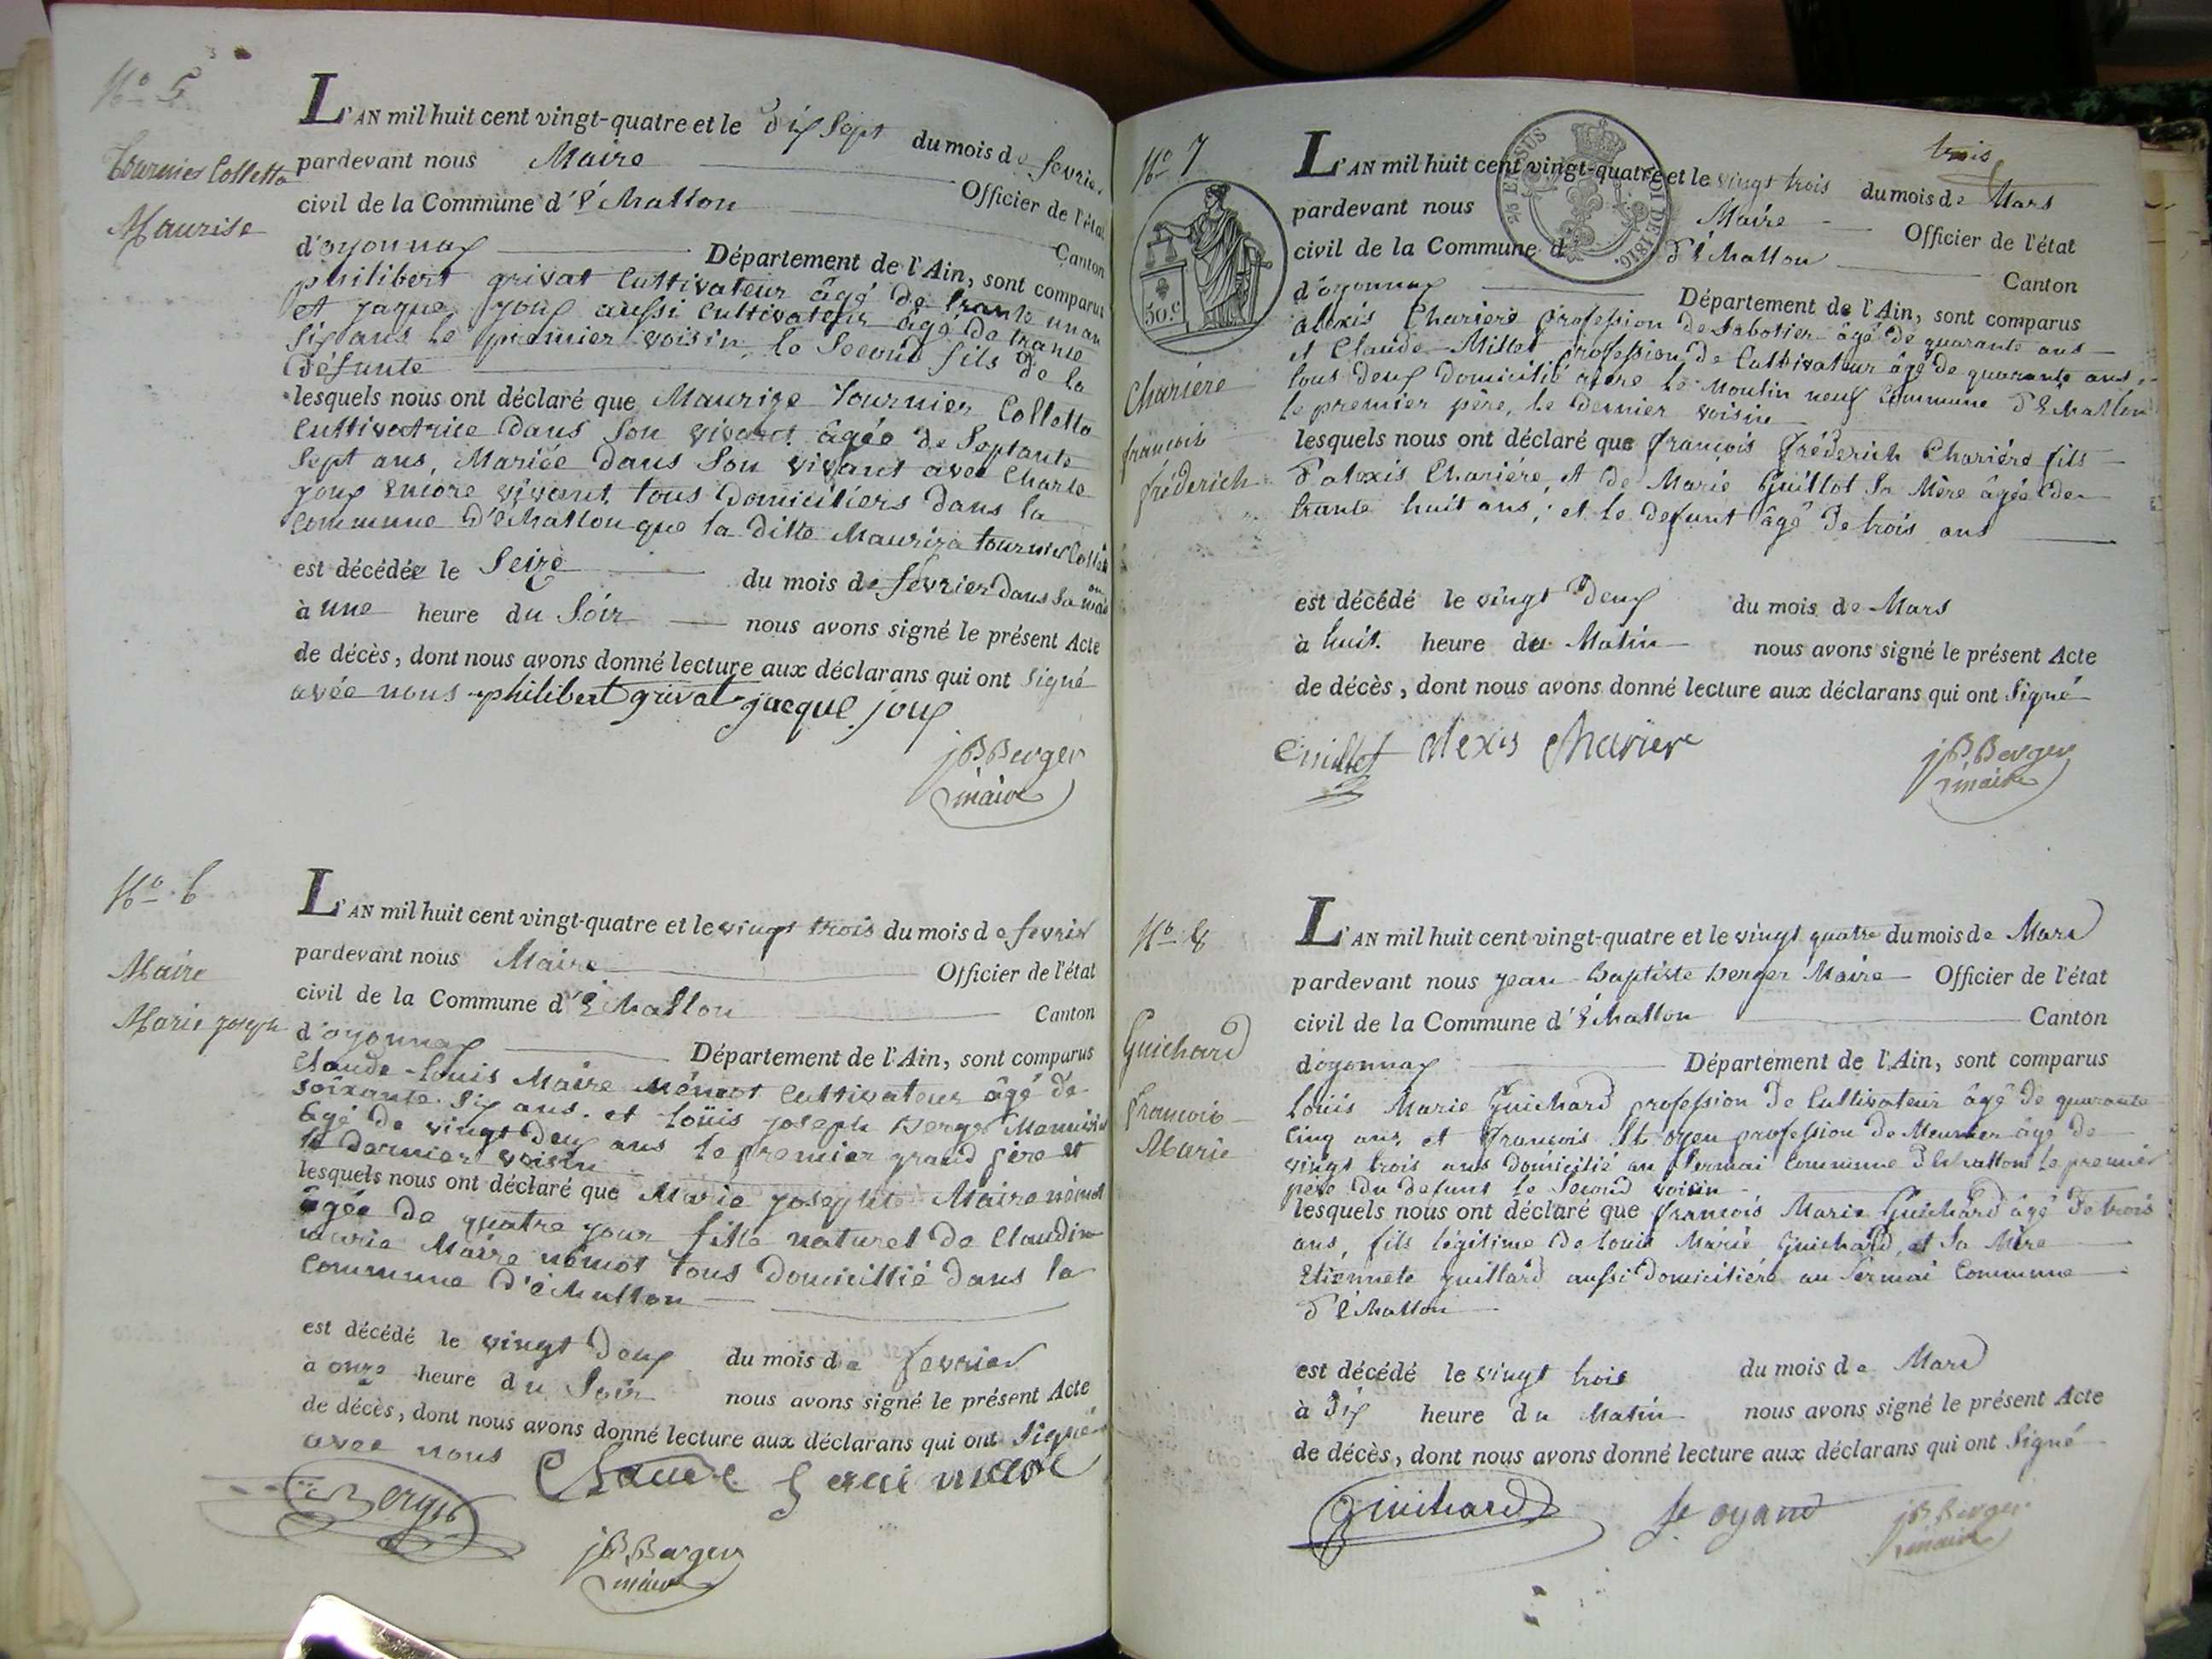 No 5
Tournier Colletta
Maurise
L'AN mil huit cent vingt-quatre et le dix Sept du mois de fevrier
pardevant nous Maire Officier de l'état
civil de la Commune d'Échallon Canton
d'oyonnax Département de l'Ain, sont comparus
philibert grivat Cultivateur âgé de trante un an
et jaque joux aussi Cultivateur âgé de trante
Six ans le premier voisin, le Second fils de la
défunte
lesquels nous ont déclaré que Maurize Tournier Colletta
Cultivatrice dans Son vivant âgée de Septante
Sept ans, Mariée dans Son vivant avec Charle
joux Encore vivant, tous Domiciliers dans la
Commune d'échallon que la ditte Mauriza tournier
est décédée le Seize du mois de février dans Sa
à une heure du Soir nous avons signé le présent Acte
de décès, dont nous avons donné lecture aux déclarans qui ont Signé
avée nous philibert grivat jacque joux
jB Berger
maire
No 6
Maire
Marie joseph
L'AN mil huit cent vingt-quatre et le vingt trois du mois de fevrier
pardevant nous Maire Officier de l'état
civil de la Commune d'Échallon Canton
d'oyonnax Département de l'Ain, sont comparus
Claude-louis Maire némoz Cultivateur âgé de
soixante Six ans. et loüis joseph Berger Menuisier
âgé de vingt deux ans le premier grand père et
le dernier voisin
lesquels nous ont déclaré que Marie josephte Maire némoz
âgée de quatre jour fille naturel de Claudine
marie Maire némoz tous domicillié dans la
Commune d'échallon
est décédé le vingt deux du mois de fevrier
à onze heure du Soir nous avons signé le présent Acte
de décès, dont nous avons donné lecture aux déclarans qui ont Signé
avec nous
Berger
jB Berger
maire
trois
No 7
30. C
Charière
francois
fréderich
L'AN mil huit cent vingt-quatre et le vingt trois du mois de Mars
pardevant nous Maire Officier de l'état
civil de la Commune d'Échallon Canton
d'oyonnax Département de l'Ain, sont comparus
alexis Chariere profession de Sabotier âgé de quarante ans
et Claude Millet profession de Cultivateur âgé de quarante ans
tous deux domicilié riere le Moulin neuf Commune d'Échallon
le premier père, le dernier voisin
lesquels nous ont déclaré que françois fréderich Chariére fils
d'alexis Chariére, et de Marie Guillot Sa Mère âgée de
trante huit ans; et le defunt âgé de trois ans
est décédé le vingt deux du mois de Mars
à huit heure du Matin nous avons signé le présent Acte
de décès, dont nous avons donné lecture aux déclarans qui ont Signé
alexis Chariere
jB Berger
maire
No 8
Guichard
francois
Marie
L'AN mil huit cent vingt-quatre et le vingt quatre du mois de Mars
pardevant nous jean Baptiste Berger Maire Officier de l'état
civil de la Commune d'Échallon Canton
d'oyonnax Département de l'Ain, sont comparus
loüis Marie Guichard profession de Cultivateur âgé de quarante
Cinq ans, et françois St oyen profession de Meunier âgé de
vingt trois ans domicilié au Sermai Commune d'Echallon le premier
père du defunt le Second voisin
lesquels nous ont déclaré que francois Marie Guichard âgé de trois
ans, fils légitime de louis Marie Guichard, et Sa Mère
Etiennete guillard aussi domiciliére au Sermai Commune
d'échallon
est décédé le vingt trois du mois de Mars
à dix heure du Matin nous avons signé le présent Acte
de décès, dont nous avons donné lecture aux déclarans qui ont Signé
Guichard St oyand jB Berger
maire